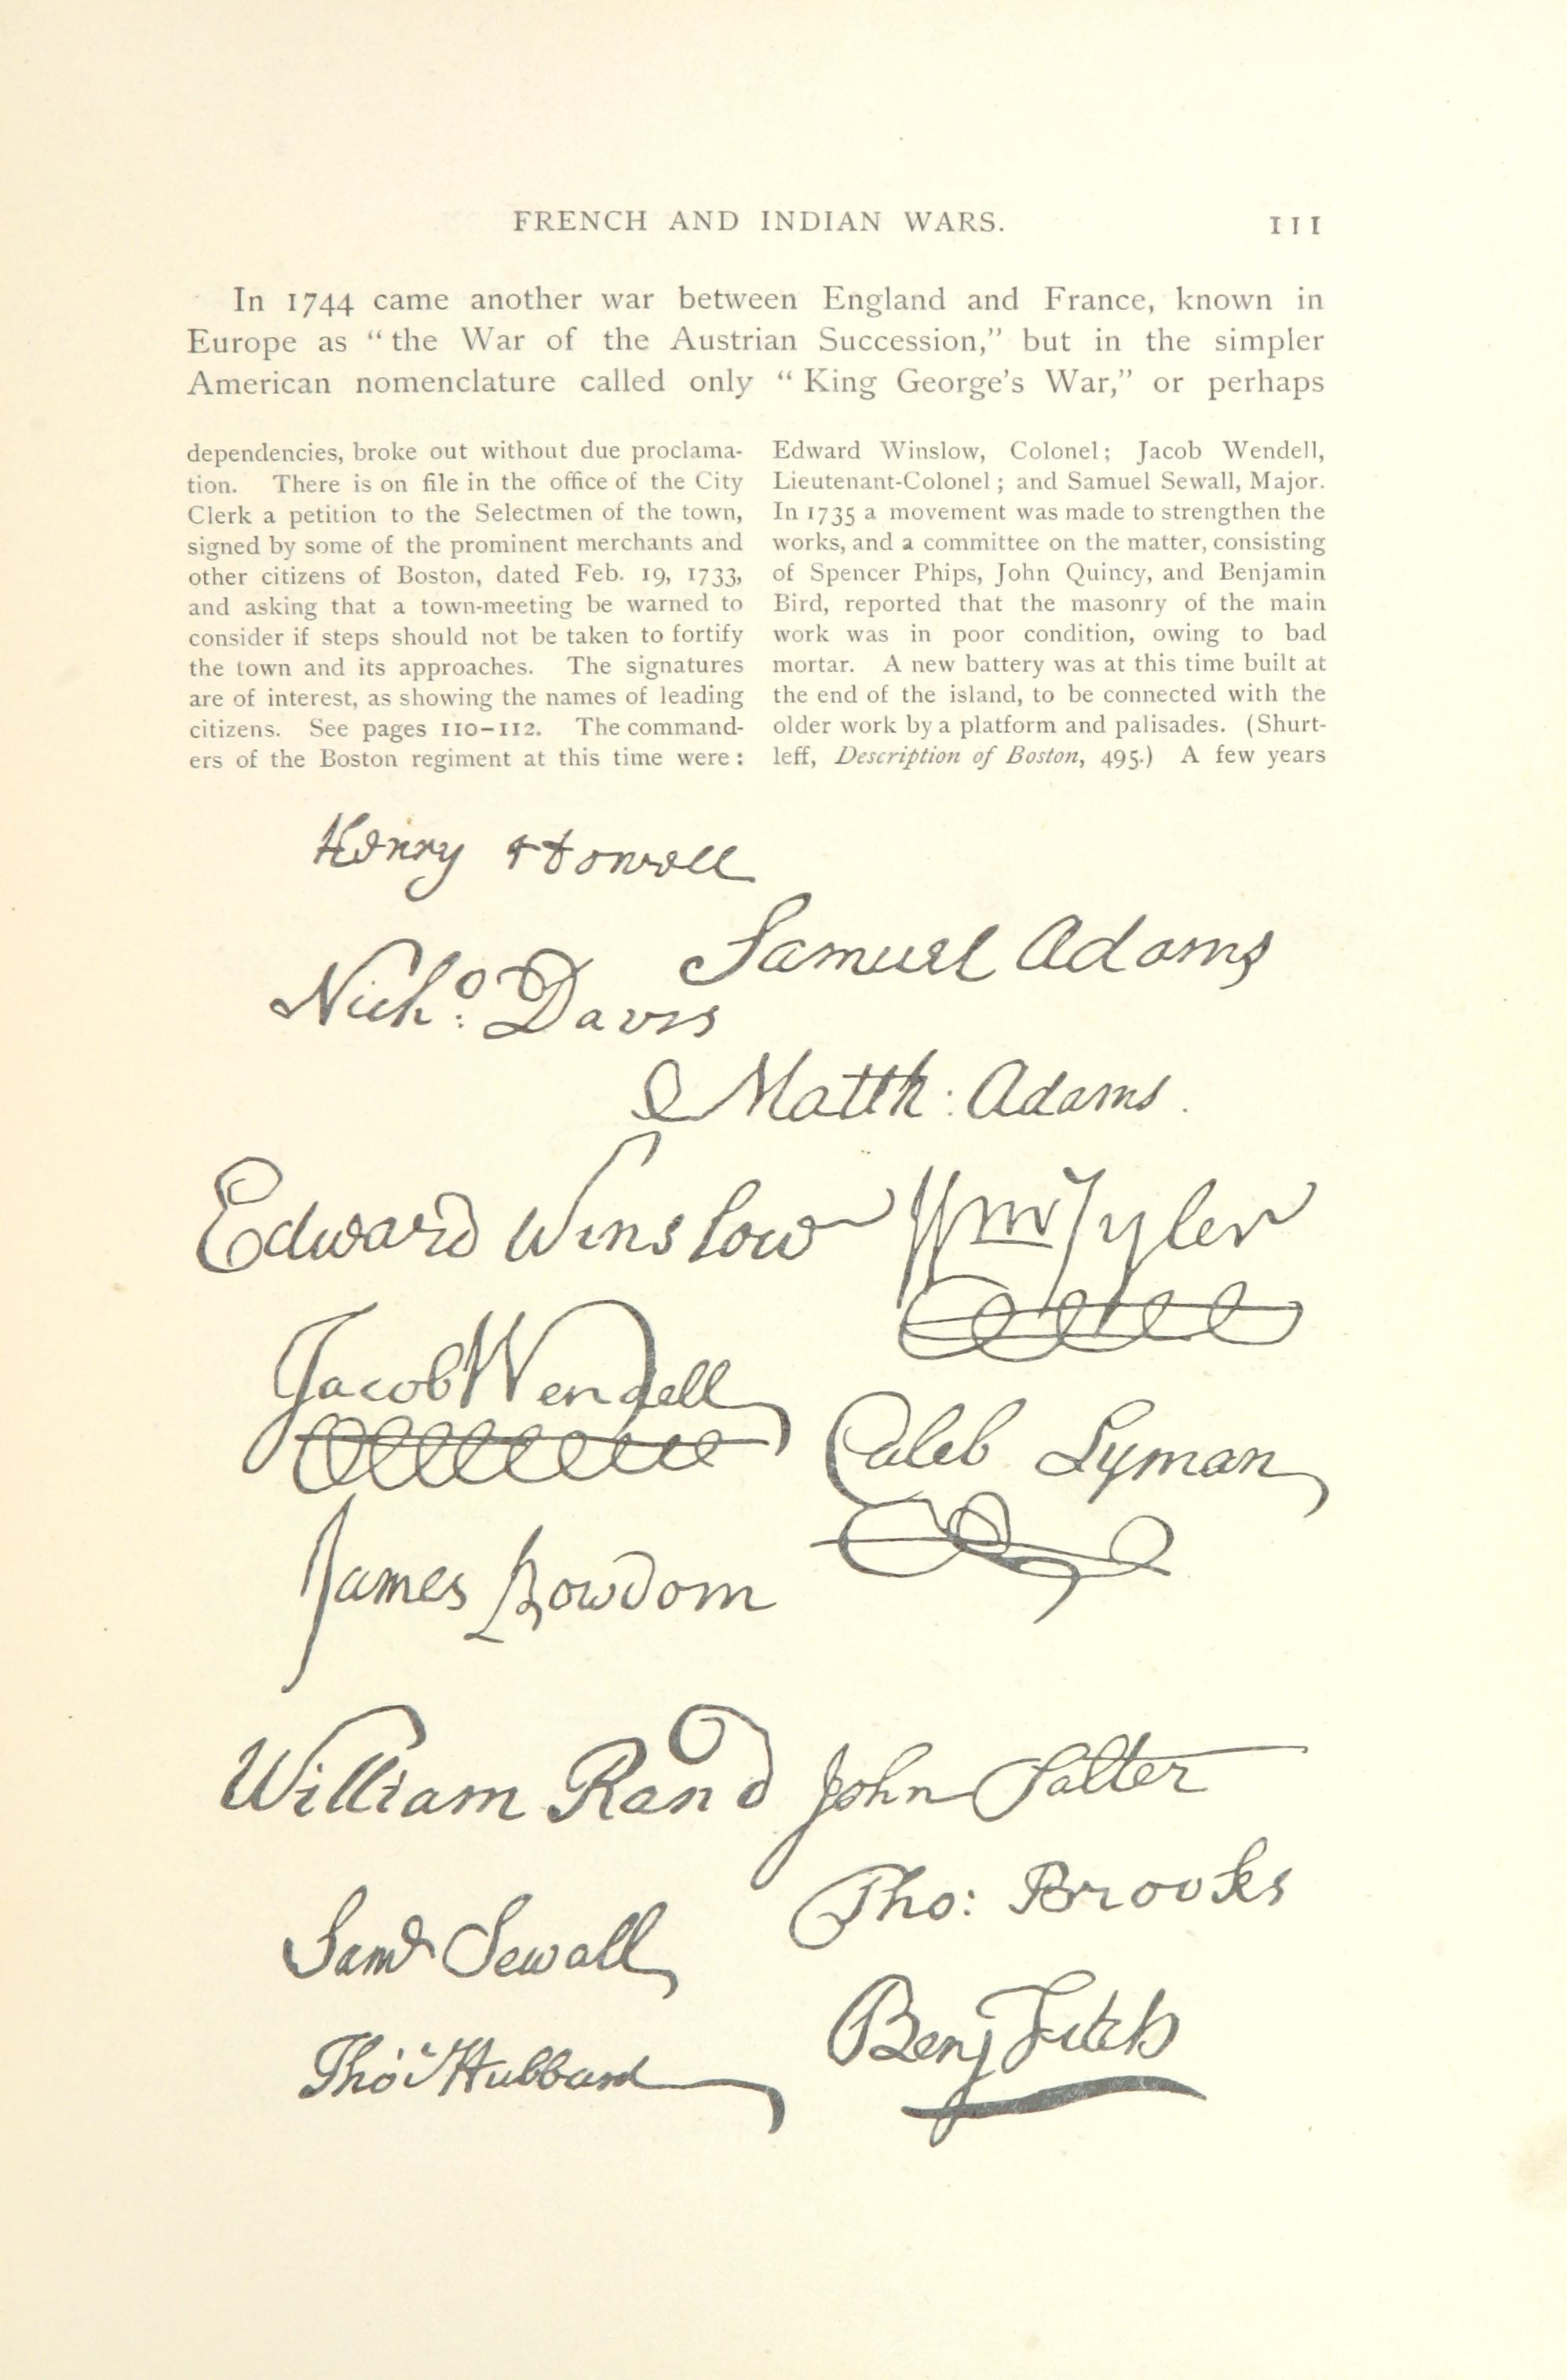 FRENCH AND INDIAN WARS. 111
In 1744 came another war between England and France, known in
Europe as “the War of the Austrian Succession,” but in the simpler
American nomenclature called only “King George’s War,” or perhaps
dependencies, broke out without due proclama-
tion. There is on file in the office of the City
Clerk a petition to the Selectmen of the town,
signed by some of the prominent merchants and
other citizens of Boston, dated Feb. 19, 1733,
and asking that a town-meeting be warned to
consider if steps should not be taken to fortify
the town and its approaches. The signatures
are of interest, as showing the names of leading
citizens. See pages 110–112. The command-
ers of the Boston regiment at this time were:
Edward Winslow, Colonel; Jacob Wendell,
Lieutenant-Colonel; and Samuel Sewall, Major.
In 1735 a movement was made to strengthen the
works, and a committee on the matter, consisting
of Spencer Phips, John Quincy, and Benjamin
Bird, reported that the masonry of the main
work was in poor condition, owing to bad
mortar. A new battery was at this time built at
the end of the island, to be connected with the
older work by a platform and palisades. (Shurt-
leff, Description of Boston, 495.) A few years
Henry Howell
Samuel Adams
Nicho: Davis
Matth: Adams.
Edward Winslow
Wm Tyler
Jacob Wendell
Caleb Lyman
James Bowdoin
William Rand
John Salter
Tho: Brooks
Saml Sewall
Benj Fitch
Tho Hubbard